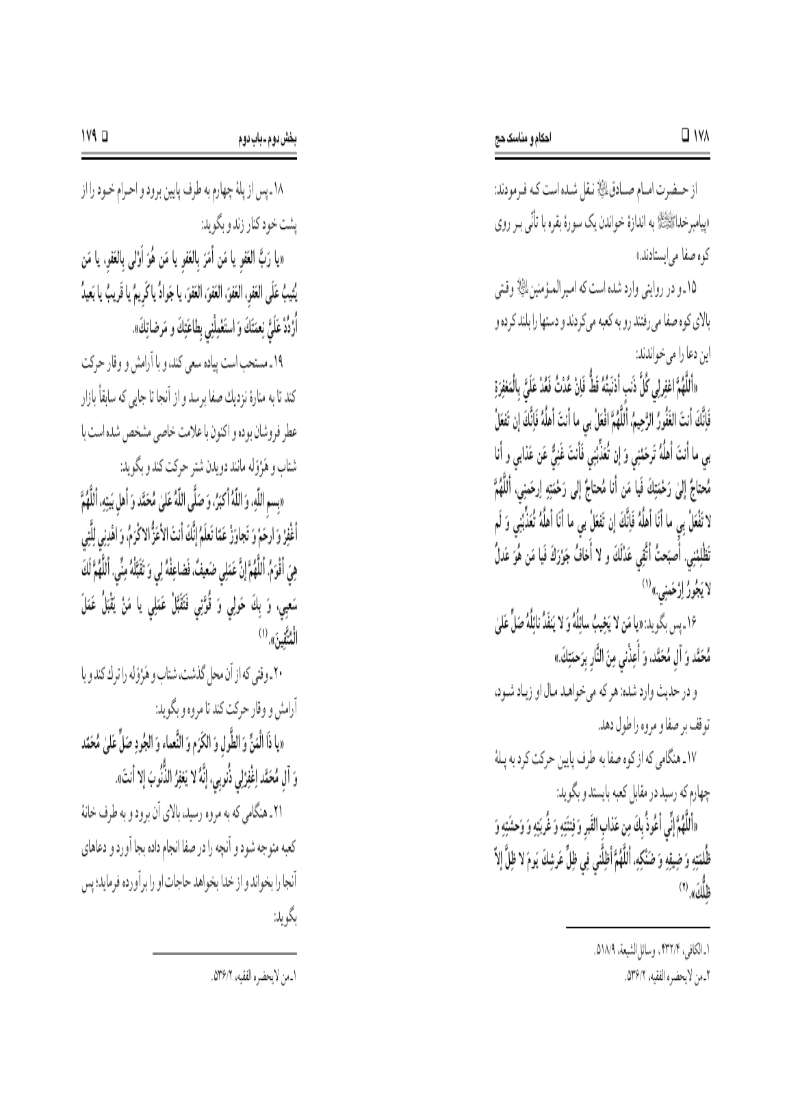 ۱۷۸ ❑ احکام و مناسک حج
از حـضرت امـام صـادق نـقل شـده است کـه فـرمودند:
«پیامبرخدا به اندازهٔ خواندن یک سورهٔ بقره با تأنّی بـر روی
کوه صفا می‌ایستادند.»
۱۵ـ و در روایتی وارد شده است که امـیرالمـؤمنین وقـتی
بالای کوه صفا می‌رفتند رو به کعبه می‌کردند و دستها را بلند کرده و
این دعا را می‌خواندند:
«أَللَّهُمَّ اغفِرلِي کُلَّ ذَنبٍ أَذنَبتُهُ قَطُّ فَإِنْ عُدْتُ فَعُدْ عَلَيَّ بِالْمَغفِرَةِ
فَإِنَّكَ أَنتَ الغَفُورُ الرَّحِيمُ، أَللَّهُمَّ افْعَلْ بِي ما أَنتَ أَهلُهُ فَإِنَّكَ إِن تَفعَلْ
بِي ما أَنتَ أَهلُهُ تَرحَمْنِي وَ إِن تُعَذِّبْنِي فَأَنتَ غَنِيٌّ عَن عَذابِي وَ أَنا
مُحتاجٌ إِلیٰ رَحْمَتِكَ فَيا مَن أَنا مُحتاجٌ إِلی رَحْمَتِهِ إِرحَمنِي، أَللَّهُمَّ
لا تَفْعَلْ بِي ما أَنَا أَهلُهُ فَإِنَّكَ إِن تَفعَلْ بِي ما أَنَا أَهلُهُ تُعَذِّبْنِي وَ لَم
تَظْلِمْنِي، أَصبَحتُ أَتَّقِي عَدْلَكَ وَ لا أَخافُ جَوْرَكَ فَيا مَن هُوَ عَدلٌ
لا يَجُورُ إِرْحَمنِي.»(۱)
۱۶ـ پس بگوید: «یا مَن لا يَخِيبُ سائِلُهُ وَ لا يَنفَدُ نائِلُهُ صَلِّ عَلیٰ
مُحَمَّد وَ آلِ مُحَمَّد، وَ أَعِذْنِي مِنَ النَّارِ بِرَحمَتِكَ.»
و در حدیث وارد شده: هر که می‌خواهـد مـال او زیـاد شـود،
توقف بر صفا و مروه را طول دهد.
۱۷ـ هنگامی که از کوه صفا به طرف پایین حرکت کرد به پـلهٔ
چهارم که رسید در مقابل کعبه بایستد و بگوید:
«أَللَّهُمَّ إِنِّي أَعُوذُ بِكَ مِن عَذابِ القَبرِ وَ فِتنَتِهِ وَ غُربَتِهِ وَ وَحشَتِهِ وَ
ظُلمَتِهِ وَ ضِيقِهِ وَ ضَنْكِهِ، أَللَّهُمَّ أَظِلَّنِي فِي ظِلِّ عَرشِكَ يَومَ لا ظِلَّ إِلاّ
ظِلُّكَ».(۲)
۱ـ الکافی، ۴۳۲/۴، وسائل الشیعة، ۵۱۸/۹.
۲ـ من لایحضره الفقیه، ۵۳۶/۲.
بخش دوم ـ باب دوم ❑ ۱۷۹
۱۸ـ پس از پلهٔ چهارم به طرف پایین برود و احـرام خـود را از
پشت خود کنار زند و بگوید:
«یا رَبَّ العَفوِ يا مَن أَمَرَ بِالعَفوِ يا مَن هُوَ أَوْلی بِالعَفوِ، يا مَن
يُثِيبُ عَلَی العَفوِ، العَفوَ، العَفوَ، العَفوَ، يا جَوادُ يا كَرِيمُ يا قَرِيبُ يا بَعيدُ
أُرْدُدْ عَلَيَّ نِعمَتَكَ وَ استَعْمِلْنِي بِطاعَتِكَ وَ مَرضاتِكَ».
۱۹ـ مستحب است پیاده سعی کند، و با آرامش و وقار حرکت
کند تا به منارهٔ نزدیك صفا برسد و از آنجا تا جایی که سابقاً بازار
عطر فروشان بوده و اکنون با علامت خاصی مشخص شده است با
شتاب و هَرْوَله مانند دویدن شتر حرکت کند و بگوید:
«بِسمِ اللّهِ، وَ اللّهُ أَكبَرُ، وَ صَلَّی اللّهُ عَلیٰ مُحَمَّد وَ أَهلِ بَيتِهِ، أَللَّهُمَّ
اْغْفِرْ وَ ارحَمْ وَ تَجاوَزْ عَمّا تَعلَمُ إِنَّكَ أَنتَ الأَعَزُّ الأَكرَمُ، وَ اهْدِنِي لِلَّتِي
هِيَ أَقْوَمُ، أَللَّهُمَّ إِنَّ عَمَلِي ضَعيفٌ، فَضاعِفْهُ لِي وَ تَقَبَّلْهُ مِنِّي، أَللَّهُمَّ لَكَ
سَعيِي، وَ بِكَ حَولِي وَ قُوَّتِي فَتَقَبَّلْ عَمَلِي يا مَنْ يَقْبَلُ عَمَلَ
الْمُتَّقِينَ».(۱)
۲۰ـ وقتی که از آن محل گذشت، شتاب و هَرْوَله را ترك کند و با
آرامش و وقار حرکت کند تا مروه و بگوید:
«یا ذَا الْمَنِّ وَ الطَّولِ وَ الکَرَمِ وَ النَّعماءِ وَ الجُودِ صَلِّ عَلیٰ مُحَمَّد
وَ آلِ مُحَمَّد اِغْفِرْلِي ذُنُوبِي، إِنَّهُ لا يَغفِرُ الذُّنُوبَ إِلا أَنتَ».
۲۱ـ هنگامی که به مروه رسید، بالای آن برود و به طرف خانهٔ
کعبه متوجه شود و آنچه را در صفا انجام داده بجا آورد و دعاهای
آنجا را بخواند و از خدا بخواهد حاجات او را برآورده فرماید؛ پس
بگوید:
۱ـ من لایحضره الفقیه، ۵۳۶/۲.